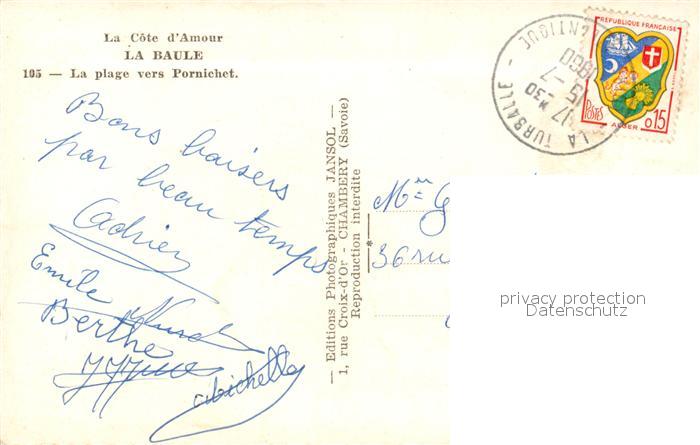 La Côte d'Amour
LA BAULE
105 — La plage vers Pornichet.
Bons baisers
par beau temps
Emile
Berthe
— Editions Photographiques JANSOL —
1, rue Croix-d'Or - CHAMBERY (Savoie)
Reproduction interdite
*
LA TURBALLE
17 H 30
15 -7
1960
REPUBLIQUE FRANÇAISE
POSTES
ALGER
0,15
36 ru
privacy protection
Datenschutz